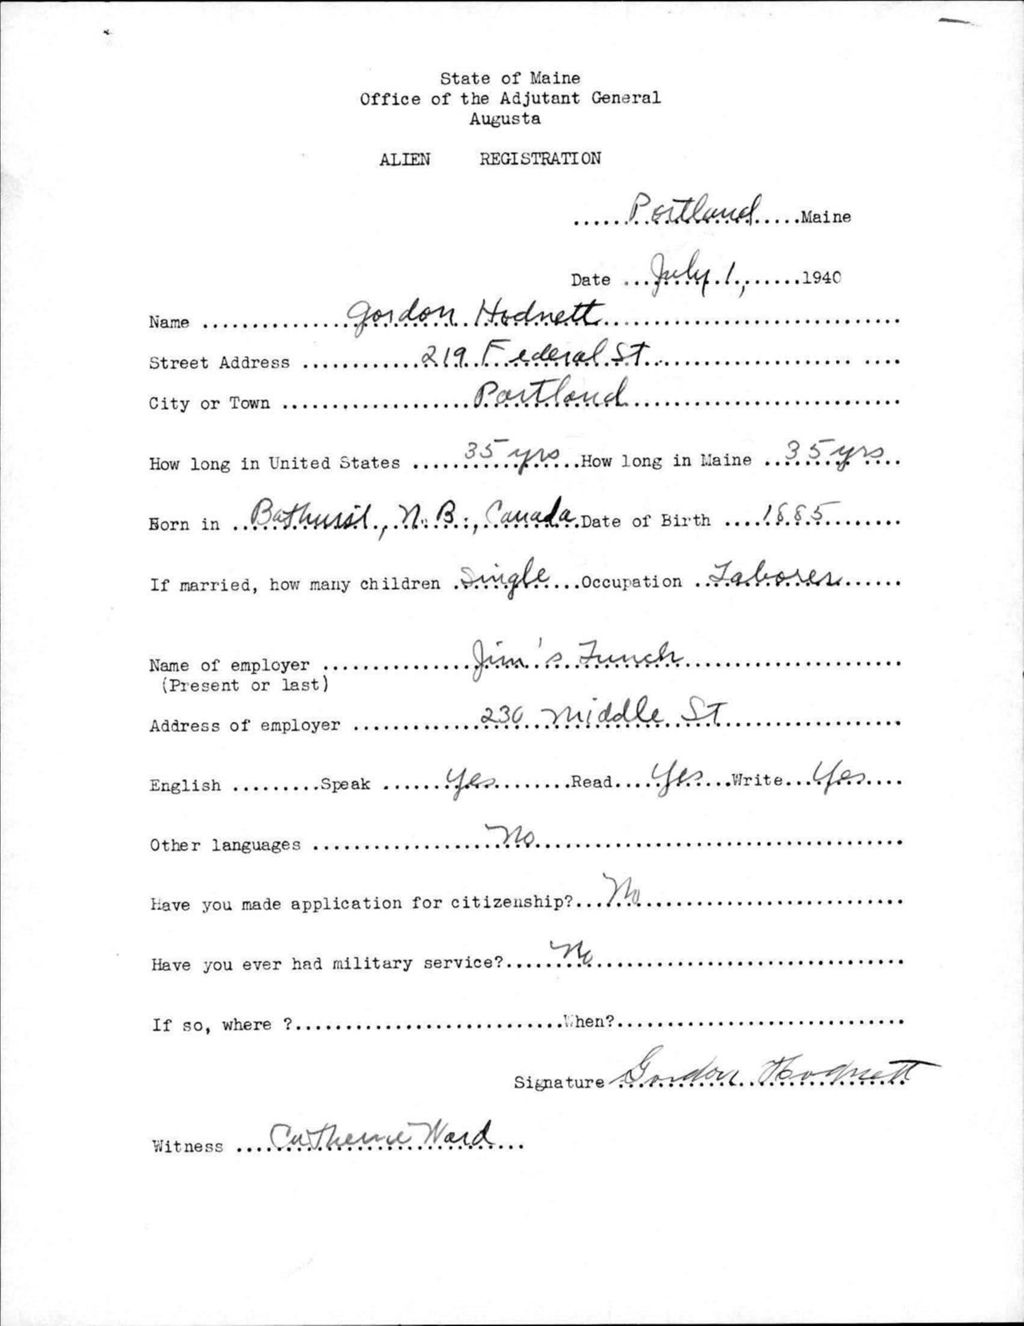 State of Maine
Office of the Adjutant General
Augusta
ALIEN REGISTRATION
......Portland.....Maine
Date ...July 1,.......1940
Name ...............Gordon Hodnett...............................
Street Address .............219 Federal St....................... ....
City or Town ....................Portland..............................
How long in United States ......35 yrs...How long in Maine ..35 yrs..
Born in ..Bathurst, N. B., Canada.Date of Birth ....1885.........
If married, how many children .Single...Occupation ..Laborer......
Name of employer ................Jim's Lunch.........................
(Present or last)
Address of employer ..............230 Middle St...................
English .........Speak ......Yes.........Read....Yes...Write...Yes....
Other languages .....................No..........................................
Have you made application for citizenship?...No..............................
Have you ever had military service?.....No....................................
If so, where ?..............................When?................................
Signature Gordon Hodnett
Witness ....Catherine Ward...